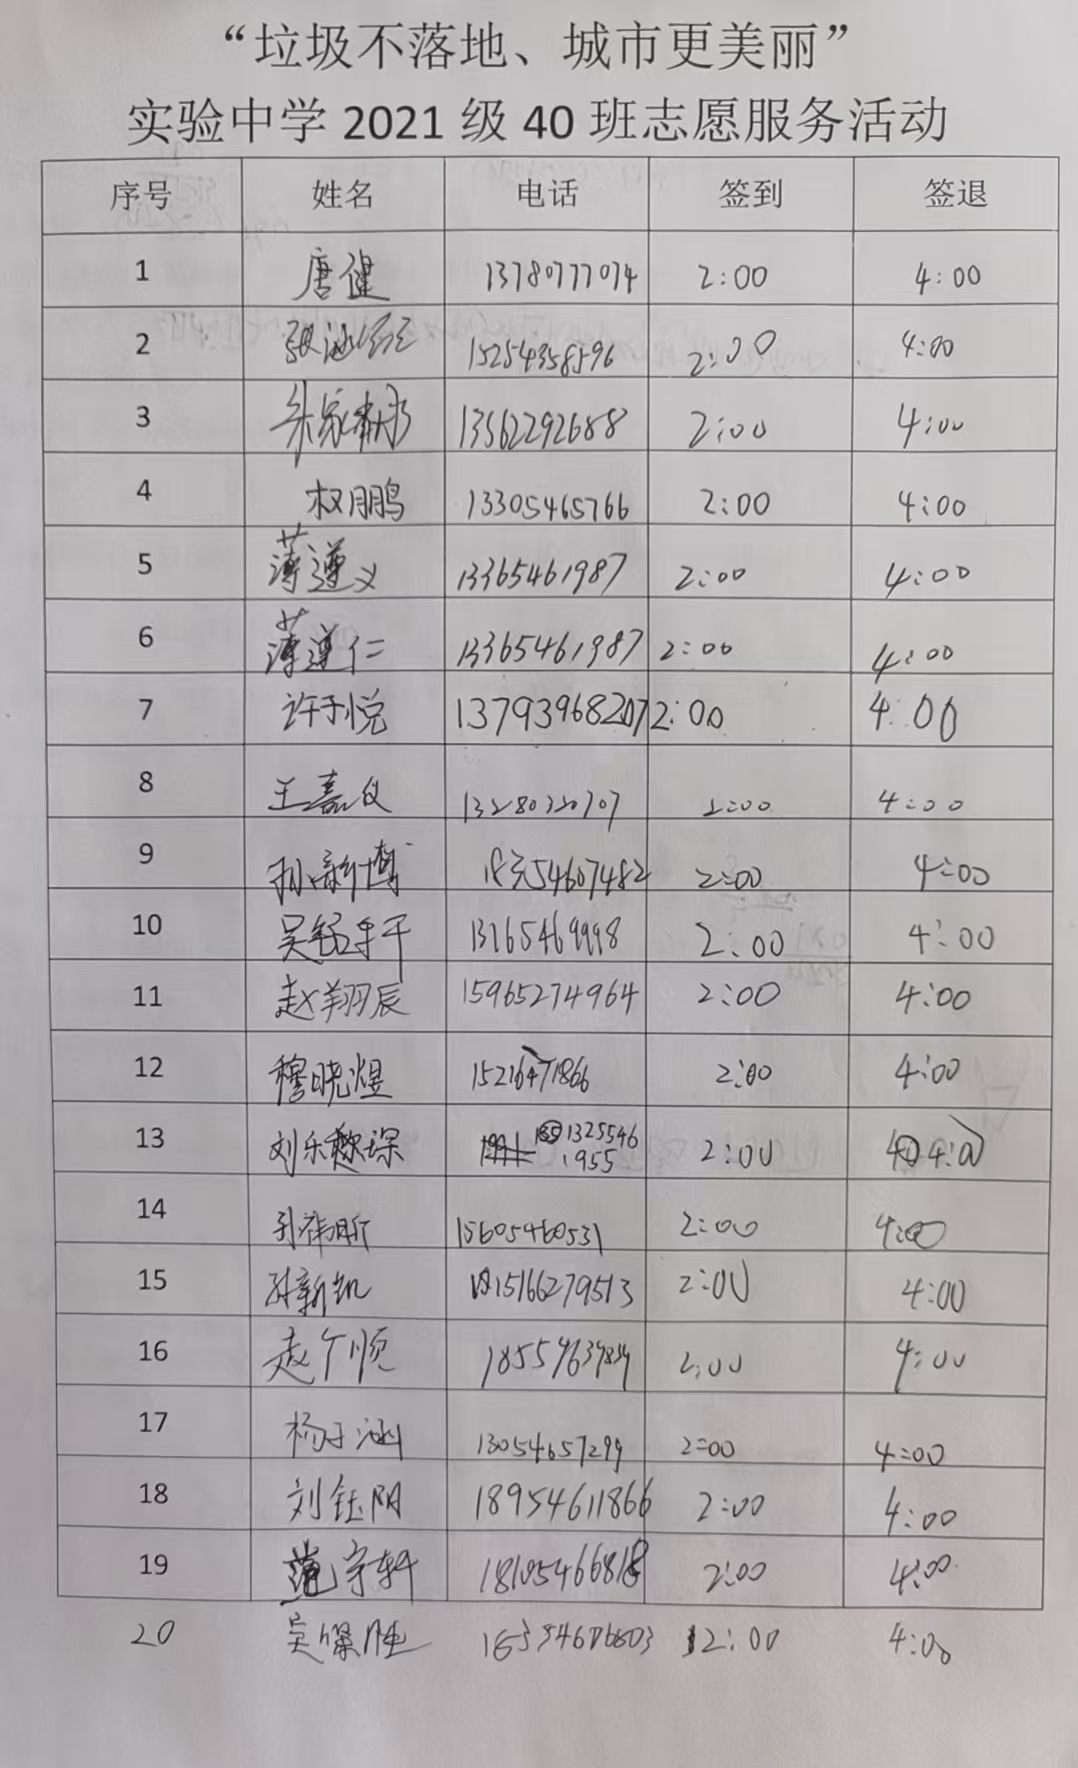 “垃圾不落地、城市更美丽”
实验中学 2021 级 40 班志愿服务活动
序号 姓名 电话 签到 签退
1 唐健 13780777074 2:00 4:00
2 张涵 15254358596 2:00 4:00
3 朱家 13562292688 2:00 4:00
4 权鹏 13305465766 2:00 4:00
5 薄遵义 13365461987 2:00 4:00
6 薄遵仁 13365461987 2:00 4:00
7 许子悦 13793968207 2:00 4:00
8 王嘉仪 2:00 4:00
9 孙新博 2:00 4:00
10 吴钰轩 2:00 4:00
11 赵翔辰 15965274964 2:00 4:00
12 穆晓煜 2:00 4:00
13 刘乐 1325546 2:00 4:00
1955
14 15605460531 2:00 4:00
15 孙新凯 15166279513 2:00 4:00
16 赵顺 2:00 4:00
17 杨子涵 13054657299 2:00 4:00
18 刘钰阳 18954611866 2:00 4:00
19 范宇轩 2:00 4:00
20 吴 2:00 4:00